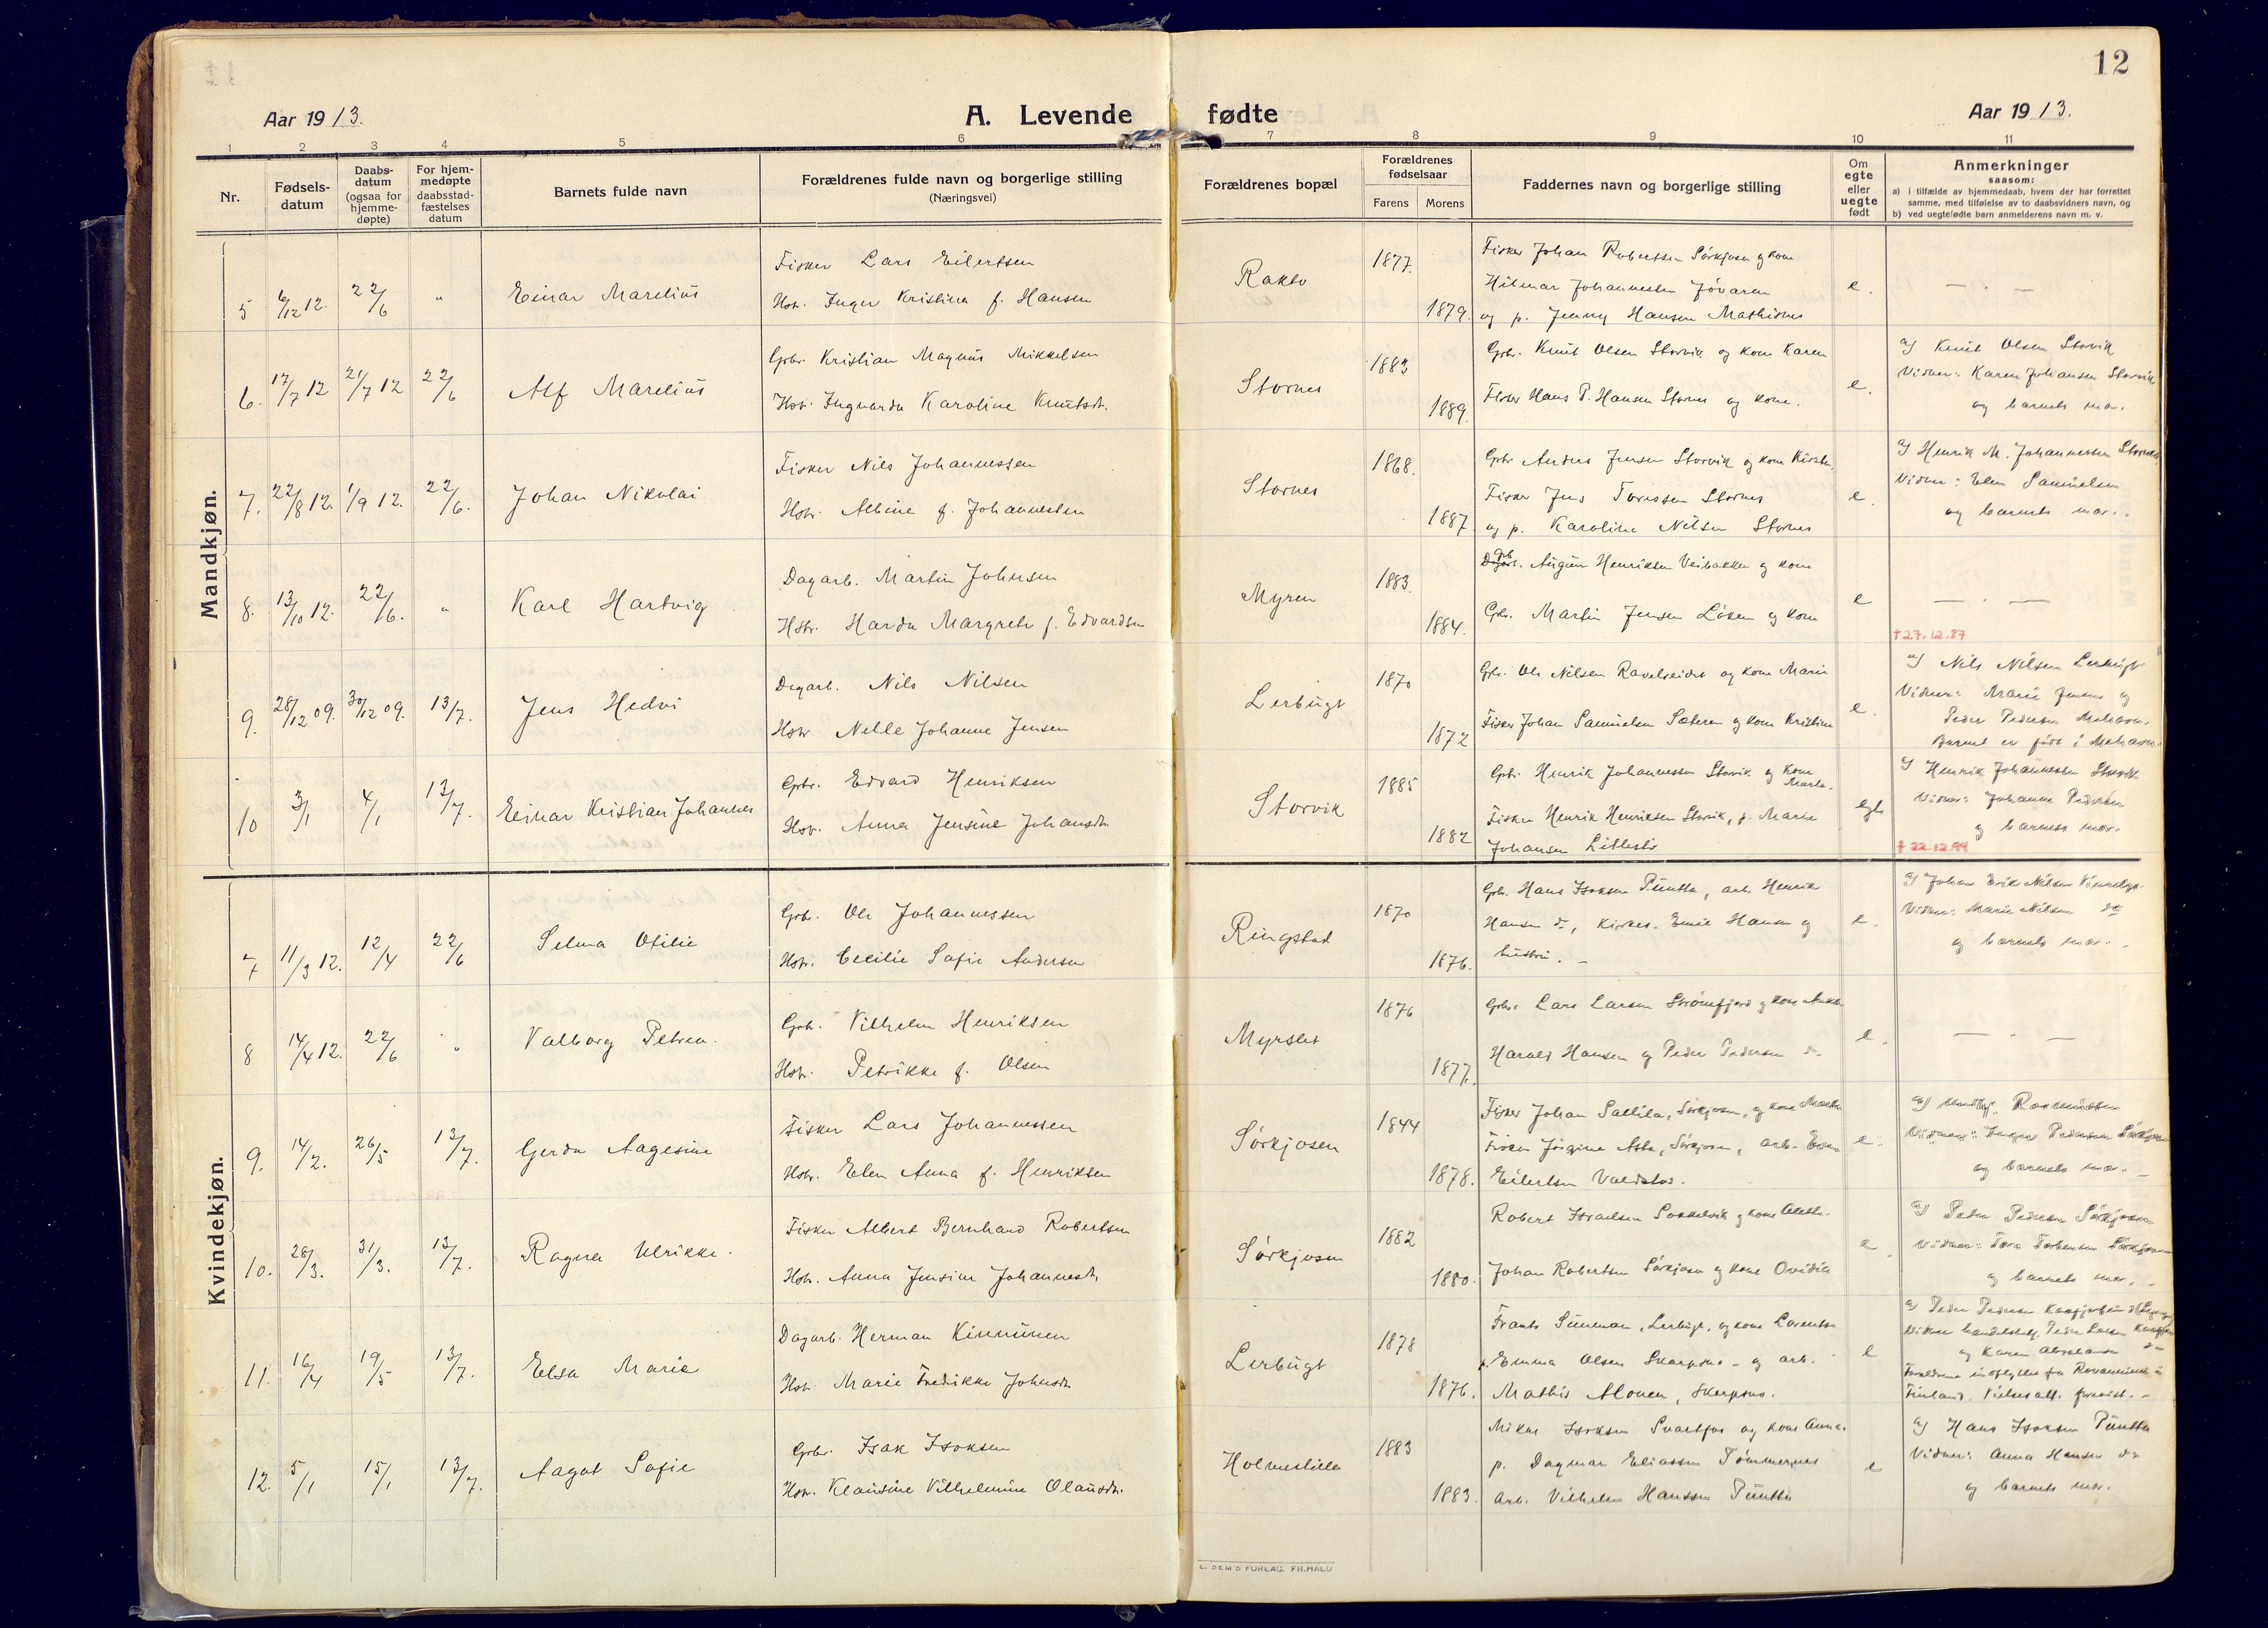 12
Aar 1913.
A. Levende fødte
Aar 1913.
1 2 3 4 5 6 7 8 9 10 11
Nr.
Fødsels-
datum
Daabs-
datum
(ogsaa for
hjemme-
døpte)
For hjem-
medøpte
daabsstad-
fæstelses
datum
Barnets fulde navn
Forældrenes fulde navn og borgerlige stilling
(Næringsvei)
Forældrenes bopæl
Forældrenes
fødselsaar
Farens Morens
Faddernes navn og borgerlige stilling
Om
egte
eller
uegte
født
Anmerkninger
saasom:
a) i tilfælde av hjemmedaab, hvem der har forrettet
samme, med tilføielse av to daabsvidners navn, og
b) ved uegtefødte barn anmelderens navn m. v.
Mandkjøn.
5 6/12 12. 22/6 " Einar Marelius
Fisker Lars Eilertsen
Hstr. Inger Kristina f. Hansen
Rakto
1877.
1879.
Fisker Johan Robertsen Sørkjosen og kone
Hilmar Johannessen
og p. Jenny Hansen Mathisnes
e.
— " —
6. 17/7 12 21/7 12 22/6 Alf Marelius
Grbr. Kristian Magnus Mikkelsen
Hstr. Ingvarda Karoline Knutsdt.
Stornes
1883
1889.
Grbr. Knut Olsen Storvik og kone Karen
Hans P. Hansen Stornes og kone.
e.
a) Knut Olsen Storvik
Vidner: Karen Johansen Storvik
og barnets mor.
7. 22/8 12. 1/9 12. 22/6. Johan Nikolai
Fisker Nils Johannessen
Hstr. Albine f. Johannessen
Stornes
1868.
1887
Grbr. Anders Jensen Storvik og kone Kirsten.
Fisker Jens Stornes
og p. Karoline Nilsen Stornes
e.
a) Henrik M. Johannessen Stornes
Vidner: Elen Samuelsen
og barnets mor.
8. 13/10 12. 22/6. " Karl Hartvig
Dagarb. Martin Johnsen
Hstr. Harda Margrete f. Edvardsen
Myren
1883.
1884.
Henriksen Veibakken og kone
Grbr. Martin Jensen Løken og kone
e
— " —
† 27.12.87
9. 28/12 09. 30/12 09. 13/7. Jens Hedvi
Dagarb. Nils Nilsen
Hstr Nelle Johanne Jensen
Lerbugt
1870
1872
Grbr. Ole Nilsen Ravelseidet og kone Marie
Fisker Johan Samuelsen Sæteren og kone Kristine
e.
a) Nils Nilsen Lerbugt
Vidner: Marie Jensen og
Peder Pedersen Mehavn.
Barnet er født i Mehavn.
10 3/1 4/1 13/7. Einar Kristian Johannes
Grbr. Edvard Henriksen
Hstr. Anna Jensine Johansdt.
Storvik
1885
1882
Grbr. Henrik Johannessen Storvik og kone
Marta.
Fisker Henrik Henriksen Storvik, p. Marie
Johansen
egte
a) Henrik Johannessen Storvik
Vidner: Johanne Pedersen
og barnets mor.
† 22.12.99
Kvindekjøn.
7 11/3 12. 12/4 22/6 Selma Otilie
Grbr. Ole Johannessen
Hstr. Cecilie Sofie Andersen
Ringstad
1870
1876.
Grb. Hans Isaksen Puntta, arb. Henrik
Hansen do, Kirkes. Emil Hansen og
hustru. —
e.
a) Johan Erik Nilsen
Vidner: Marie Nilsen do
og barnets mor.
8 14/4 12. 22/6 " Valborg Petrea.
Grb. Vilhelm Henriksen
Hstr. Petrikke f. Olsen
Myrslet
1876
1877.
Grbr. Lars Larsen Strømfjord og kone
Harald Hansen og Peder Pedersen do.
e.
— " —
9. 14/2. 26/5 13/7. Gerda Aagesine
Fisker Lars Johannessen
Hstr. Elen Anna f. Henriksen
Sørkjosen
1844
1878.
Fisker Johan Sallila, Sørkjosen, og kone
Fisker Jørgine Sørkjosen, arb.
Eilertsen
e.
a) Rasmussen
Vidner: Inger Pedersen Sørkjosen
og barnets mor.
10. 28/3. 31/3. 13/7. Ragna Ulrikke.
Fisker Albert Bernhard Robertsen
Hstr. Anna Jensine Johannesdt.
Sørkjosen
1882
1880.
Robert Israelsen Sokkelvik og kone
Johan Robertsen Sørkjosen og kone Ovidia
e.
a) Peder Pedersen Sørkjosen
Vidner: Tora Sørkjosen
og barnets mor.
11. 16/4 19/5 13/7. Elsa Marie
Dagarb. Herman Kinnunen
Hstr. Marie Fredrikke Johnsdt.
Lerbugt
1878
1876.
Frants Lerbugt, og kone Lorentse
p. Emma Olsen og arb.
Mathis
e
a) Peder Pedersen
Vidner handelsbetj. Peder Larsen
og Karen Abrahamsen do
Forældrene indflyttet fra Rovaniemi i
Finland. Vielsesatt. forevist. -
12. 5/1 15/1 13/7. Aagot Sofie
Grbr. Isak Isaksen
Hstr. Klausine Vilhelmine Olausdt.
Holmestilla
1883
1883.
Mikal Isaksen Svartfos og kone Anna.
p. Dagmar Eliassen Tømmernes
Arb. Vilhelm Hanssen Puntta
e
a) Hans Isaksen Puntta
Vidner: Anna Hansen do
og barnets mor.
E. SEM'S FORLAG. FR.HALD